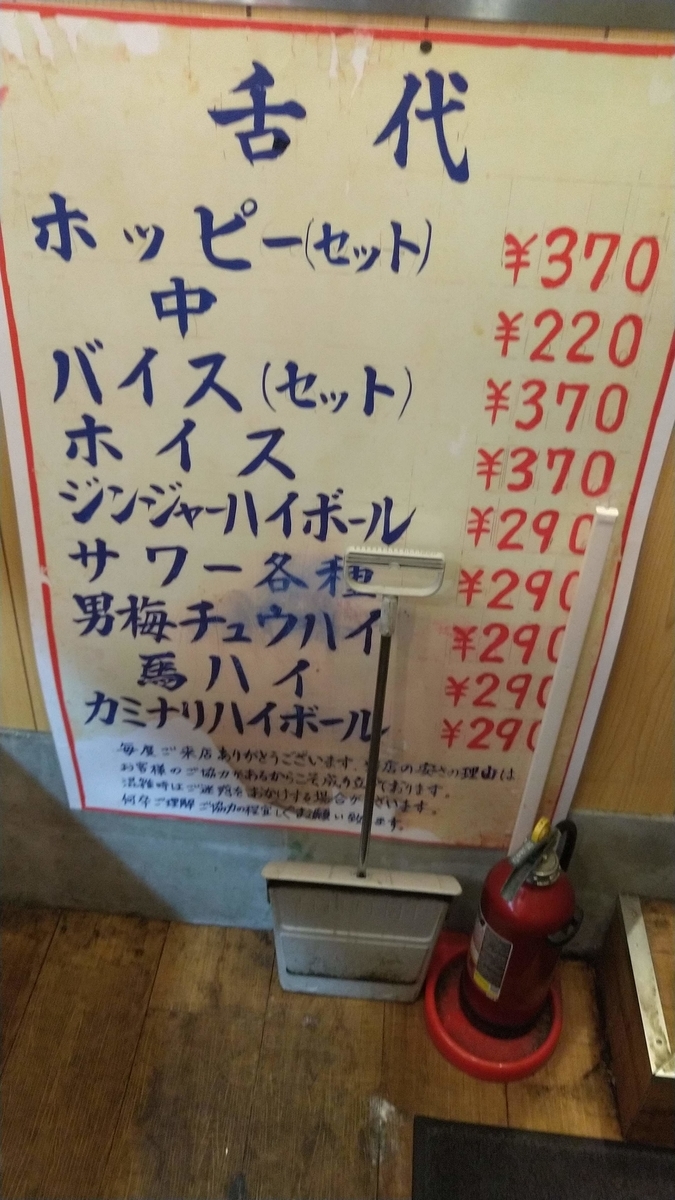 舌代
ホッピー(セット) ¥370
中 ¥220
バイス(セット) ¥370
ホイス ¥370
ジンジャーハイボール ¥290
サワー各種 ¥290
男梅チュウハイ ¥290
馬ハイ ¥290
カミナリハイボール ¥290
毎度ご来店ありがとうございます。当店の安さの理由は
お客様のご協力があるからこそ成り立っております。
混雑時はご迷惑をおかけする場合がございます。
何卒ご理解ご協力の程宜しくお願い致します。